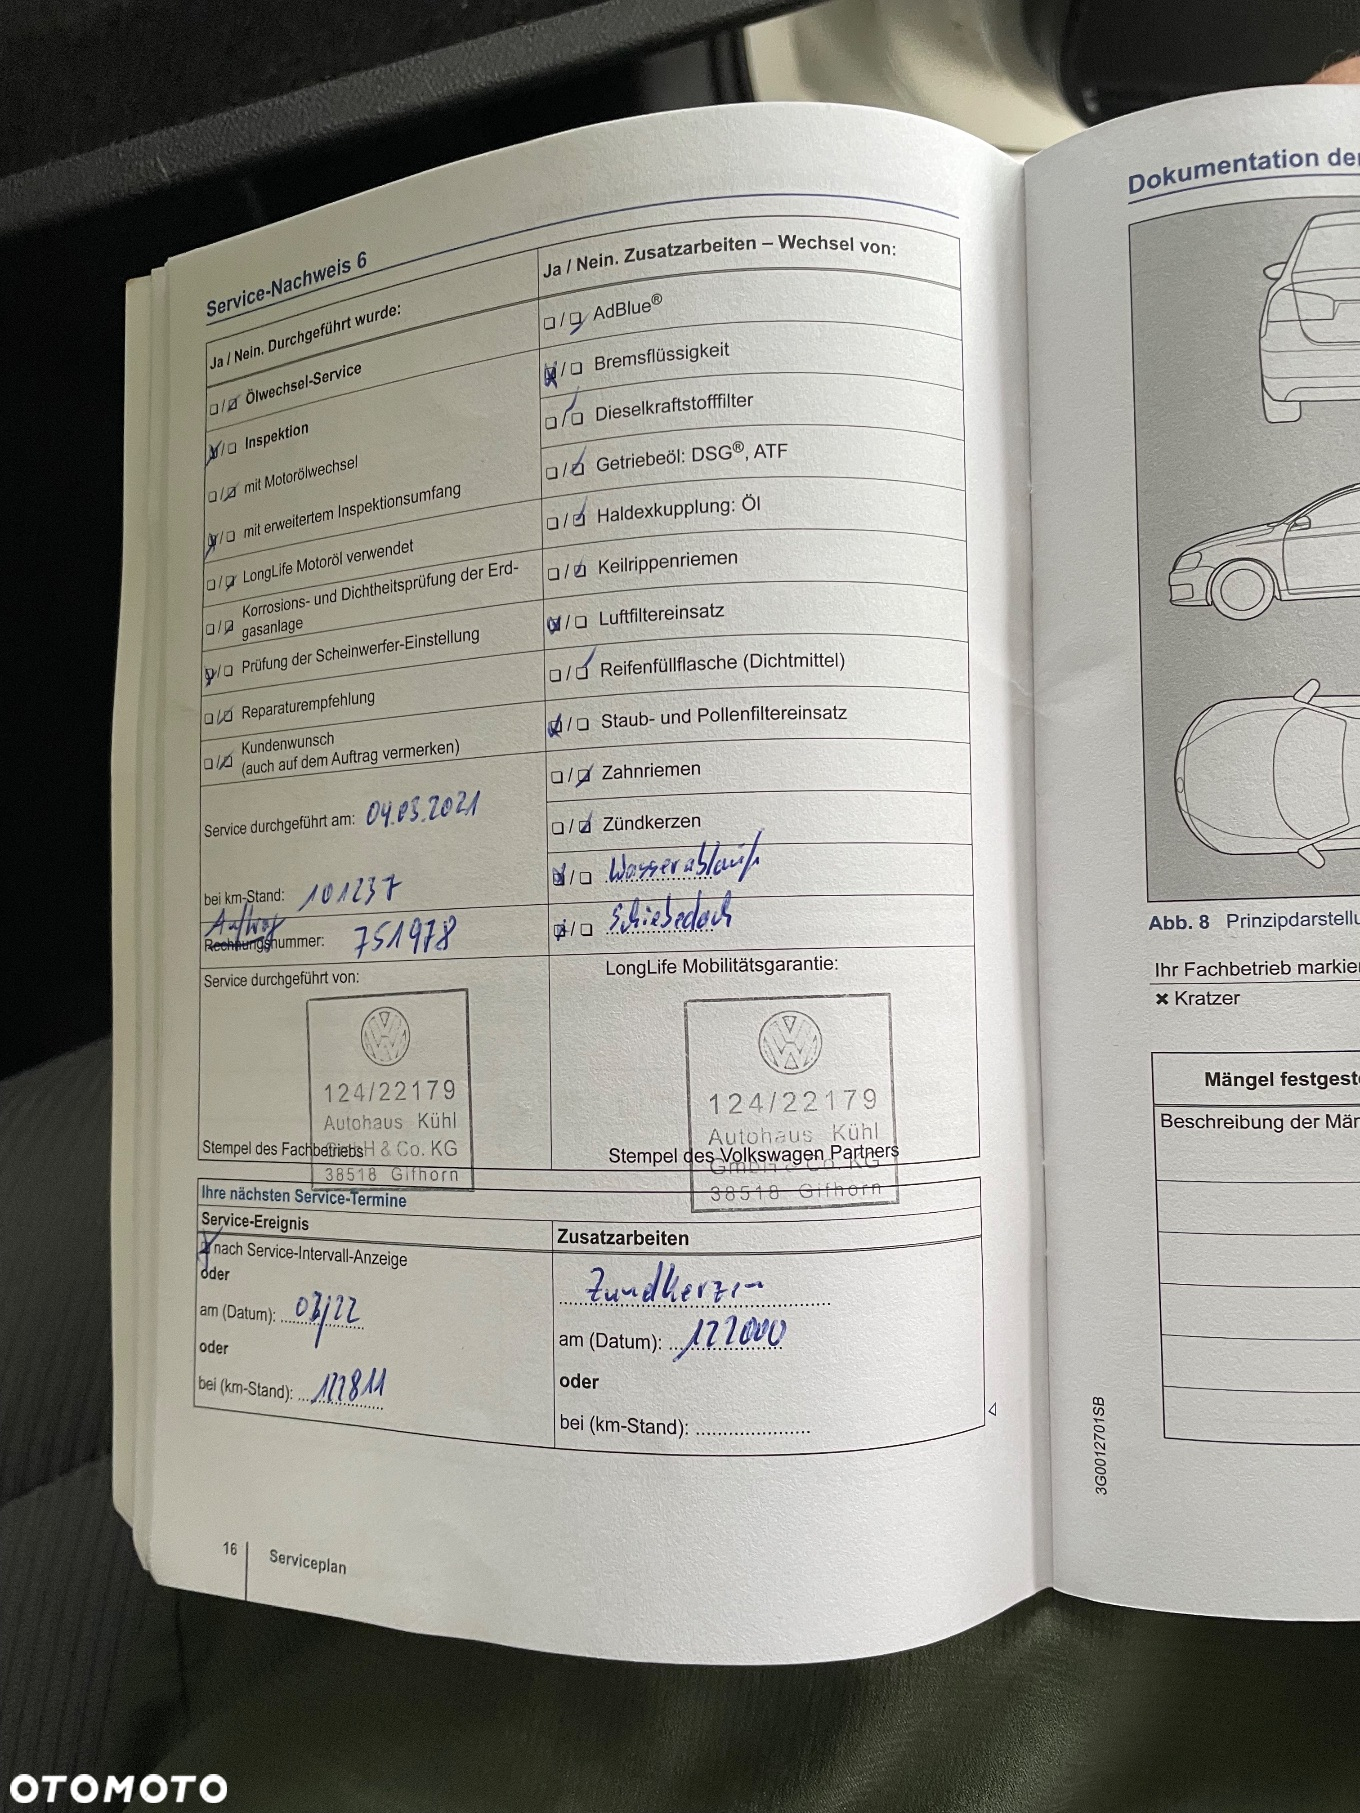 Service-Nachweis 6
Ja / Nein. Durchgeführt wurde:
Ölwechsel-Service
Inspektion
mit Motorölwechsel
mit erweitertem Inspektionsumfang
LongLife Motoröl verwendet
Korrosions- und Dichtheitsprüfung der Erd-
gasanlage
Prüfung der Scheinwerfer-Einstellung
Reparaturempfehlung
Kundenwunsch
(auch auf dem Auftrag vermerken)
Service durchgeführt am: 04.03.2021
bei km-Stand: 101237
Auftrag
Rechnungsnummer: 751978
Service durchgeführt von:
124/22179
Autohaus Kühl
GmbH & Co. KG
38518 Gifhorn
Stempel des Fachbetriebs
Ja / Nein. Zusatzarbeiten – Wechsel von:
AdBlue®
Bremsflüssigkeit
Dieselkraftstofffilter
Getriebeöl: DSG®, ATF
Haldexkupplung: Öl
Keilrippenriemen
Luftfiltereinsatz
Reifenfüllflasche (Dichtmittel)
Staub- und Pollenfiltereinsatz
Zahnriemen
Zündkerzen
Wasserablauf
Schiebedach
LongLife Mobilitätsgarantie:
124/22179
Autohaus Kühl
GmbH & Co. KG
38518 Gifhorn
Stempel des Volkswagen Partners
Ihre nächsten Service-Termine
Service-Ereignis
nach Service-Intervall-Anzeige
oder
am (Datum): 03/22
oder
bei (km-Stand):
Zusatzarbeiten
Zündkerzen
am (Datum): 122000
oder
bei (km-Stand):
16
Serviceplan
Dokumentation der
Abb. 8 Prinzipdarstellu
Ihr Fachbetrieb markier
✖ Kratzer
Mängel festgeste
Beschreibung der Män
3G0012701SB
OTOMOTO